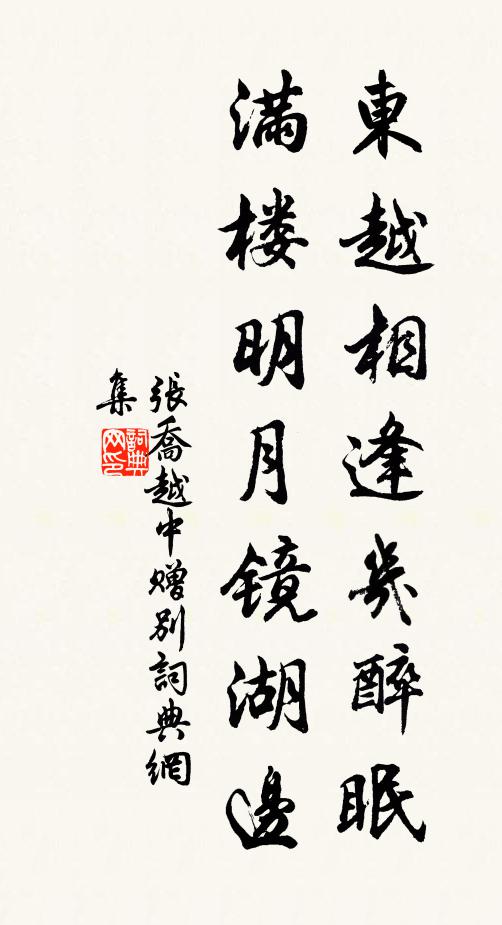 東越相逢幾醉眠
满楼明月镜湖邊
張喬越中赠别詞典網
集
詞典
网印